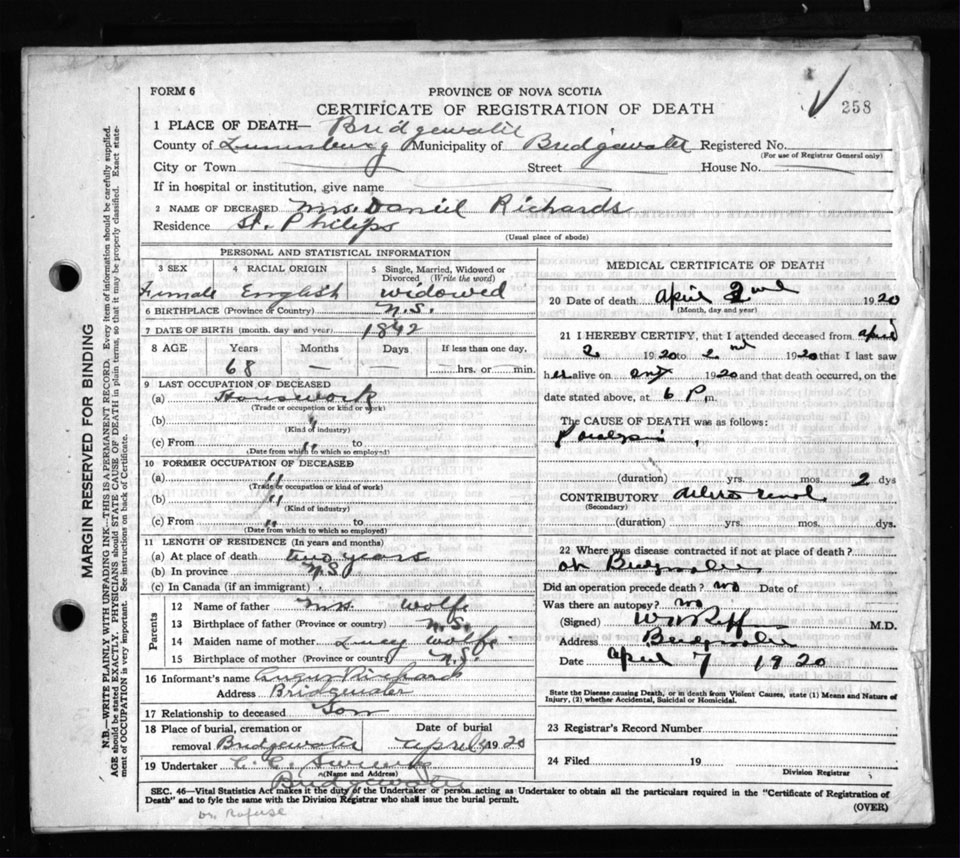 FORM 6
PROVINCE OF NOVA SCOTIA
CERTIFICATE OF REGISTRATION OF DEATH
258
1 PLACE OF DEATH— Bridgewater
County of Lunenburg Municipality of Bridgewater Registered No.
(For use of Registrar General only)
City or Town Street House No.
If in hospital or institution, give name
2 NAME OF DECEASED Mrs. Daniel Richards
Residence St. Philips
(Usual place of abode)
PERSONAL AND STATISTICAL INFORMATION
3 SEX 4 RACIAL ORIGIN 5 Single, Married, Widowed or Divorced (Write the word)
Female English widowed
6 BIRTHPLACE (Province or Country) N.S.
7 DATE OF BIRTH (month, day and year) 1842
8 AGE Years Months Days If less than one day,
68 — — hrs. or min.
9 LAST OCCUPATION OF DECEASED
(a) Housework
(Trade or occupation or kind of work)
(b) "
(Kind of industry)
(c) From " to
(Date from which to which so employed)
10 FORMER OCCUPATION OF DECEASED
(a) "
(Trade or occupation or kind of work)
(b) "
(Kind of industry)
(c) From " to
(Date from which to which so employed)
11 LENGTH OF RESIDENCE (In years and months)
(a) At place of death two years
(b) In province N.S.
(c) In Canada (if an immigrant)
Parents
12 Name of father wolfe
13 Birthplace of father (Province or country) N.S.
14 Maiden name of mother Lucy Wolfe
15 Birthplace of mother (Province or country) N.S.
16 Informant's name Richards
Address Bridgewater
17 Relationship to deceased Son
18 Place of burial, cremation or Date of burial
removal Bridgewater April 1920
19 Undertaker C. E.
(Name and Address)
Bridgewater
MEDICAL CERTIFICATE OF DEATH
20 Date of death April 2nd 1920
(Month, day and year)
21 I HEREBY CERTIFY, that I attended deceased from April
2 1920 to 2nd 1920 that I last saw
her alive on 1920 and that death occurred, on the
date stated above, at 6 P m.
The CAUSE OF DEATH was as follows:
Paralysis
(duration) yrs. mos. 2 dys
CONTRIBUTORY
(Secondary)
(duration) yrs. mos. dys.
22 Where was disease contracted if not at place of death?
at Bridgewater
Did an operation precede death? no Date of
Was there an autopsy? no
(Signed) M.D.
Address Bridgewater
Date April 7 1920
State the Disease causing Death, or in death from Violent Causes, state (1) Means and Nature of
Injury, (2) whether Accidental, Suicidal or Homicidal.
23 Registrar's Record Number
24 Filed 19
Division Registrar
SEC. 46—Vital Statistics Act makes it the duty of the Undertaker or person acting as Undertaker to obtain all the particulars required in the "Certificate of Registration of
Death" and to fyle the same with the Division Registrar who shall issue the burial permit.
(OVER)
Dr Rafuse
MARGIN RESERVED FOR BINDING
N.B.—WRITE PLAINLY WITH UNFADING INK—THIS IS A PERMANENT RECORD. Every item of information should be carefully supplied.
AGE should be stated EXACTLY. PHYSICIANS should STATE CAUSE OF DEATH in plain terms, so that it may be properly classified. Exact state-
ment of OCCUPATION is very important. See instructions on back of Certificate.